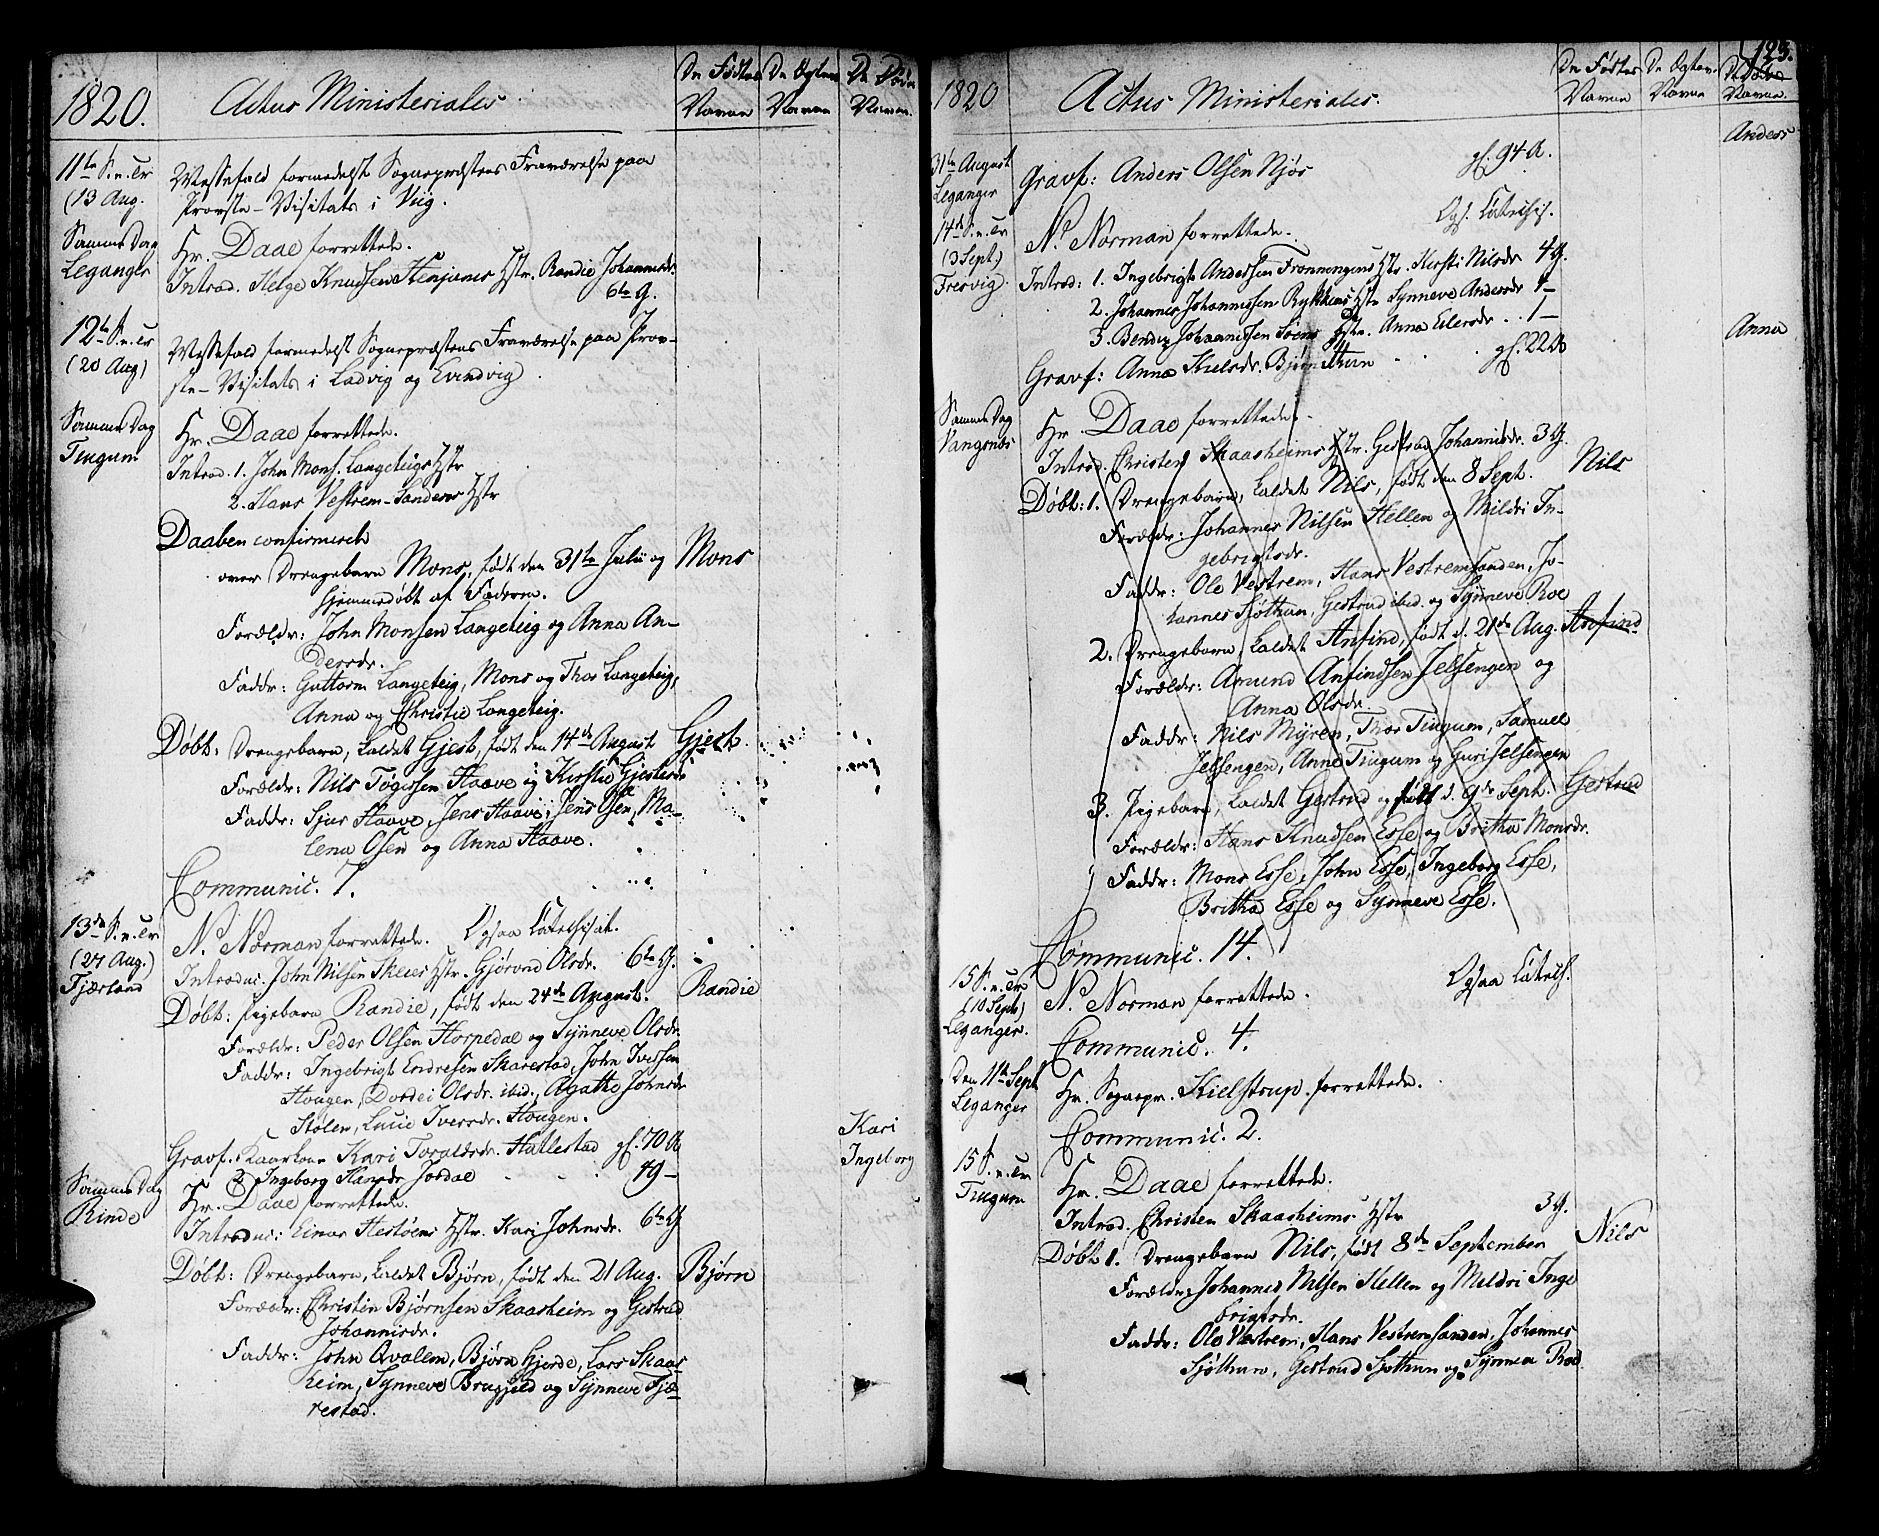 1820.
Actus Ministeriales.
De Fødtes
Navne
De Egtev.
Navne
De Døbte
Navne.
11te S. e. Tr
(13 Aug.
Messefald formedelst Sognepræstens Fraværelse paa
Provste-Visitats i Viig.
Samme Dag
Leganger
Hr. Daae forrettede.
Introd. Helge Knudsen Henjums Hstr. Randie Johannesdr.
6te g.
12te S. e. Tr
(20 Aug)
Messefald formedelst Sognepræstens Fraværelse paa Prov-
ste-Visitats i Ladvig og Evindvig.
Samme Dag
Tiugum
Hr. Daae forrettede.
Introd. 1. John Mons. Langeteigs Hstr
2. Hans Vestrem-Sandens Hstr
Daaben confirmeret
over Drengebarn Mons, født den 31te Julii og
Mons
hjemmedøbt af Faderen.
Forældr: John Monsen Langeteig og Anna An-
dersdr.
Faddr: Guttorm Langeteig, Mons og Thor Langeteig,
Anna og Christie Langeteig.
Døbt: Drengebarn, kaldet Gjest, født den 14de August
Gjest.
Forældr: Nils Tøgersen Haave og Kirstie Gjestsdr
Faddr: Sjur Haave, Jens Haave, Jens Osen, Ma-
lena Osen og Anna Haave.
Communic. 7.
13de S. e. Tr
(27 Aug.)
Fjærland
N. Norman forrettede. Ogsaa Catechisat.
Introduc. John Nilsen Skeies Hstr. Gjørond Olsdr. 6te g.
Døbt: Pigebarn Randie, født den 24de August.
Randie
Forældr: Peder Olsen Horpedal og Synneve Olsdr
Faddr: Ingebrigt Endresen Skarestad, John Iversen
Hougen, Dordei Olsdr. ibid., Agathe Johnsdr
Stølen, Lucie Iversdr. Hougen.
Gravf. Kaarkone Kari Toraldsdr. Hatlestad gl. 70 A
Kari
2 Ingeborg Hansdr Jordal - - 49 -
Ingeborg
Samme Dag
Rinde
Hr. Daae forrettede.
Introduc: Einar Hestøens Hstr. Kari Johnsdr. 6te g
Døbt: Drengebarn, kaldet Bjørn, født den 21 Aug.
Bjørn
Forældr: Christen Bjørnsen Skaasheim og Gestrud
Johannisdr.
Faddr: John Qvalem, Bjørn Gjerde, Lars Skaas
heim, Synneve Brugjeld og Synneve Fjæ-
restad.
123.
1820
Actus Ministeriales.
De Fødtes
Navne
De Egtev.
Navne
De Døde
Navne.
31te August
Leganger
Gravf: Anders Olsen Njøs gl. 94 A.
Anders
14de S. e. Tr
(3 Sept.)
Fresvig.
N. Norman forrettede. Ogs. Catechis.
Introd: 1. Ingebrigt Andersen Fronningens Hstr. Kersti Nilsdr 4 g.
2. Johannes Johannessen Rykkens Hstr Synneve Andersdr 1 -
3. Bendix Johannissen Hstr. Anna Eilersdr . . 1 -
Gravf: Anna Nielsdr. Bjørnethun gl. 22
Anna
Samme Dag
Vangsnæs
Hr. Daae forrettede.
Introd. Christen Skaasheims Hstr. Gestrud Johannisdr. 3 g.
Døbt: 1. Drengebarn, kaldet Nils, født den 8 Sept.
Nils
Forældr: Johannes Nilsen Hellen og Mildri In-
gebrigtsdr.
Faddr: Ole Vestrem, Hans Vestremsanden, Jo-
hannes Sjøthun, Gestrud ibid. og Synneve Roe
2. Drengebarn, kaldet Anfind, født d. 21de Aug.
Anfind
Forældr: Amund Anfindsen Jelsengen og
Anna Olsdr.
Faddr: Nils Myren, Thor Tiugum, Samuel
Jelsengen, Anne Tiugum og Guri Jelsengen
3. Pigebarn, kaldet Gestrud og født d. 9de Sept.
Gestrud
Forældr: Hans Knudsen Esse og Britha Monsdr.
Faddr: Mons Esse, John Esse, Ingeborg Esse,
Britha Esse og Synneve Esse.
Communic. 14.
15 S. e. Tr
(10 Sept)
Leganger.
N. Norman forrettede. Ogsaa Catech.
Communic. 4.
Den 11te Sept
Leganger
Hr. Sognepr. Kielstrup forrettede.
Communic. 2.
15 S. e. Tr
Tiugum
Hr. Daae forrettede.
Introd. Christen Skaasheims Hstr 3 g.
Døbt 1. Drengebarn Nils, født 8de September
Nils
Forældr: Johannes Nilsen Hellen og Meldri Inge
brigtsdr.
Faddr: Ole Vestrem, Hans Vestremsanden, Johannes
Sjøthun, Gestrud Sjøthun og Synneva Roe.